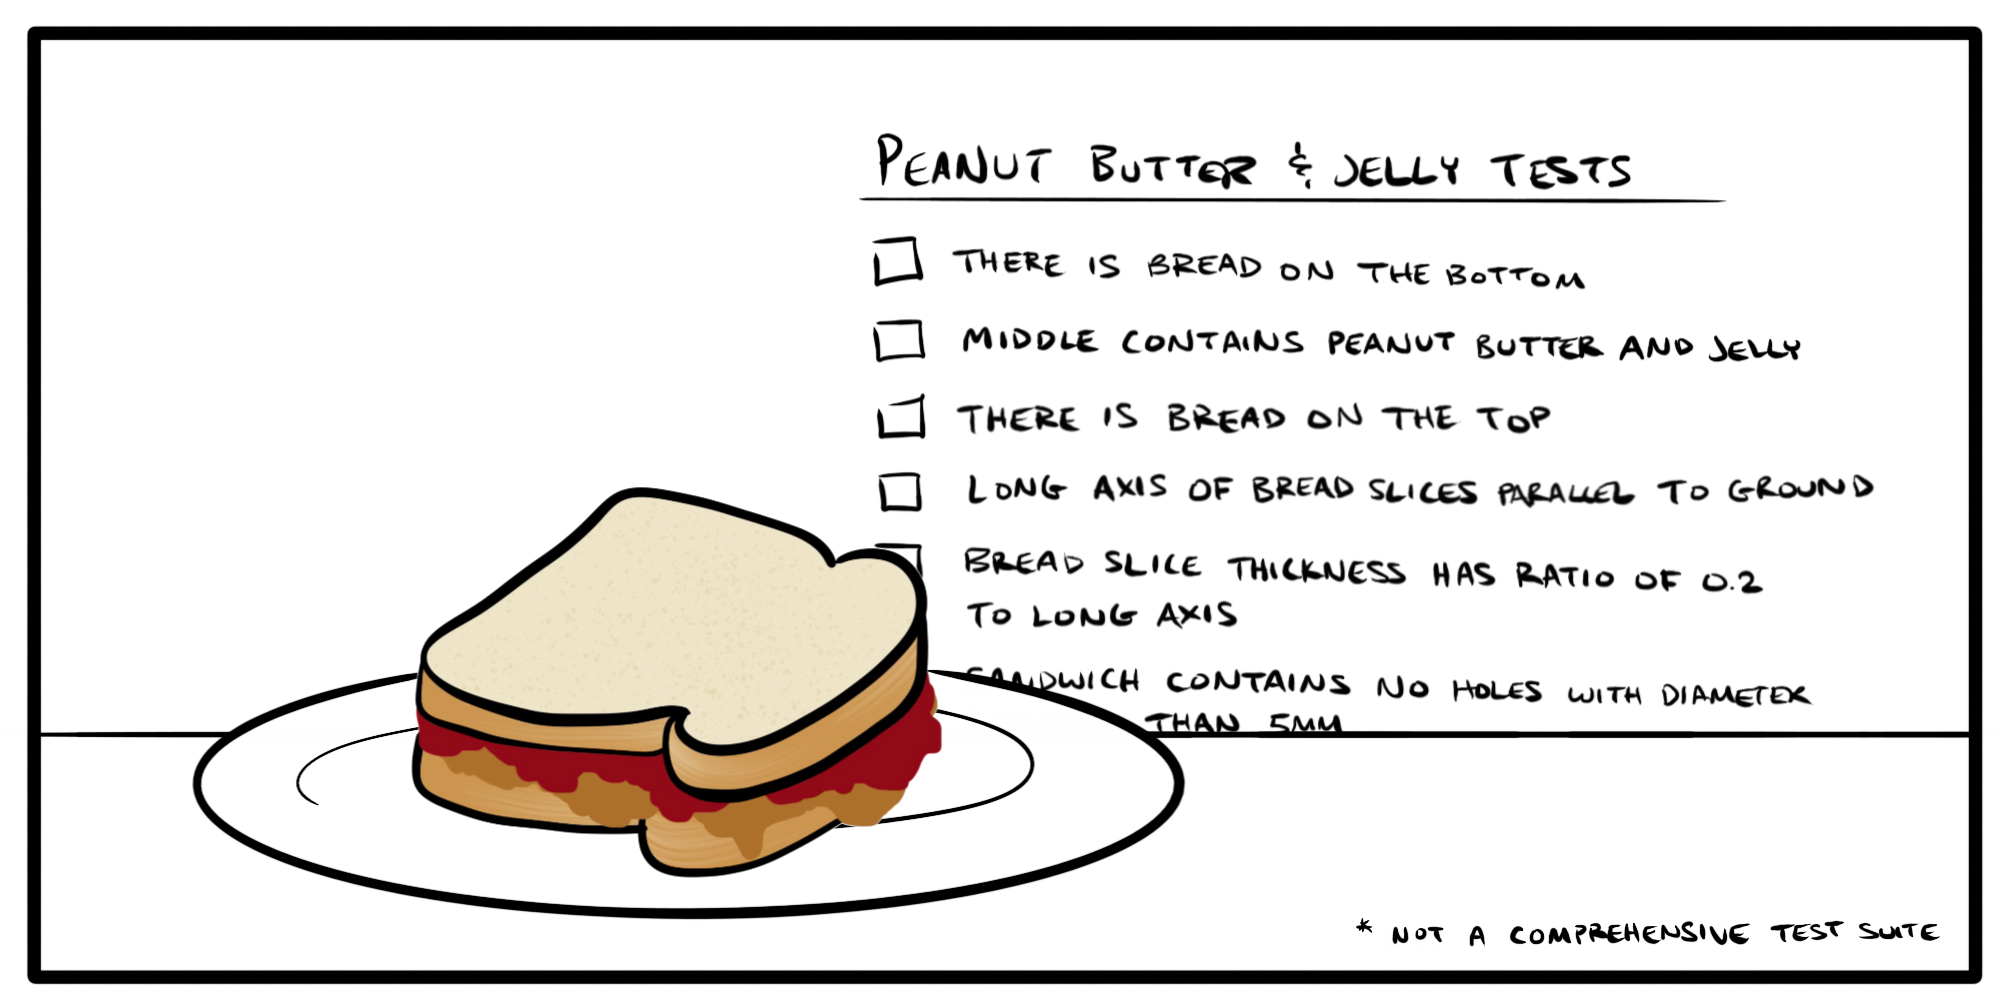 PEANUT BUTTER & JELLY TESTS
THERE IS BREAD ON THE BOTTOM
MIDDLE CONTAINS PEANUT BUTTER AND JELLY
THERE IS BREAD ON THE TOP
LONG AXIS OF BREAD SLICES PARALLEL TO GROUND
BREAD SLICE THICKNESS HAS RATIO OF 0.2
TO LONG AXIS
SANDWICH CONTAINS NO HOLES WITH DIAMETER
THAN 5MM
* NOT A COMPREHENSIVE TEST SUITE